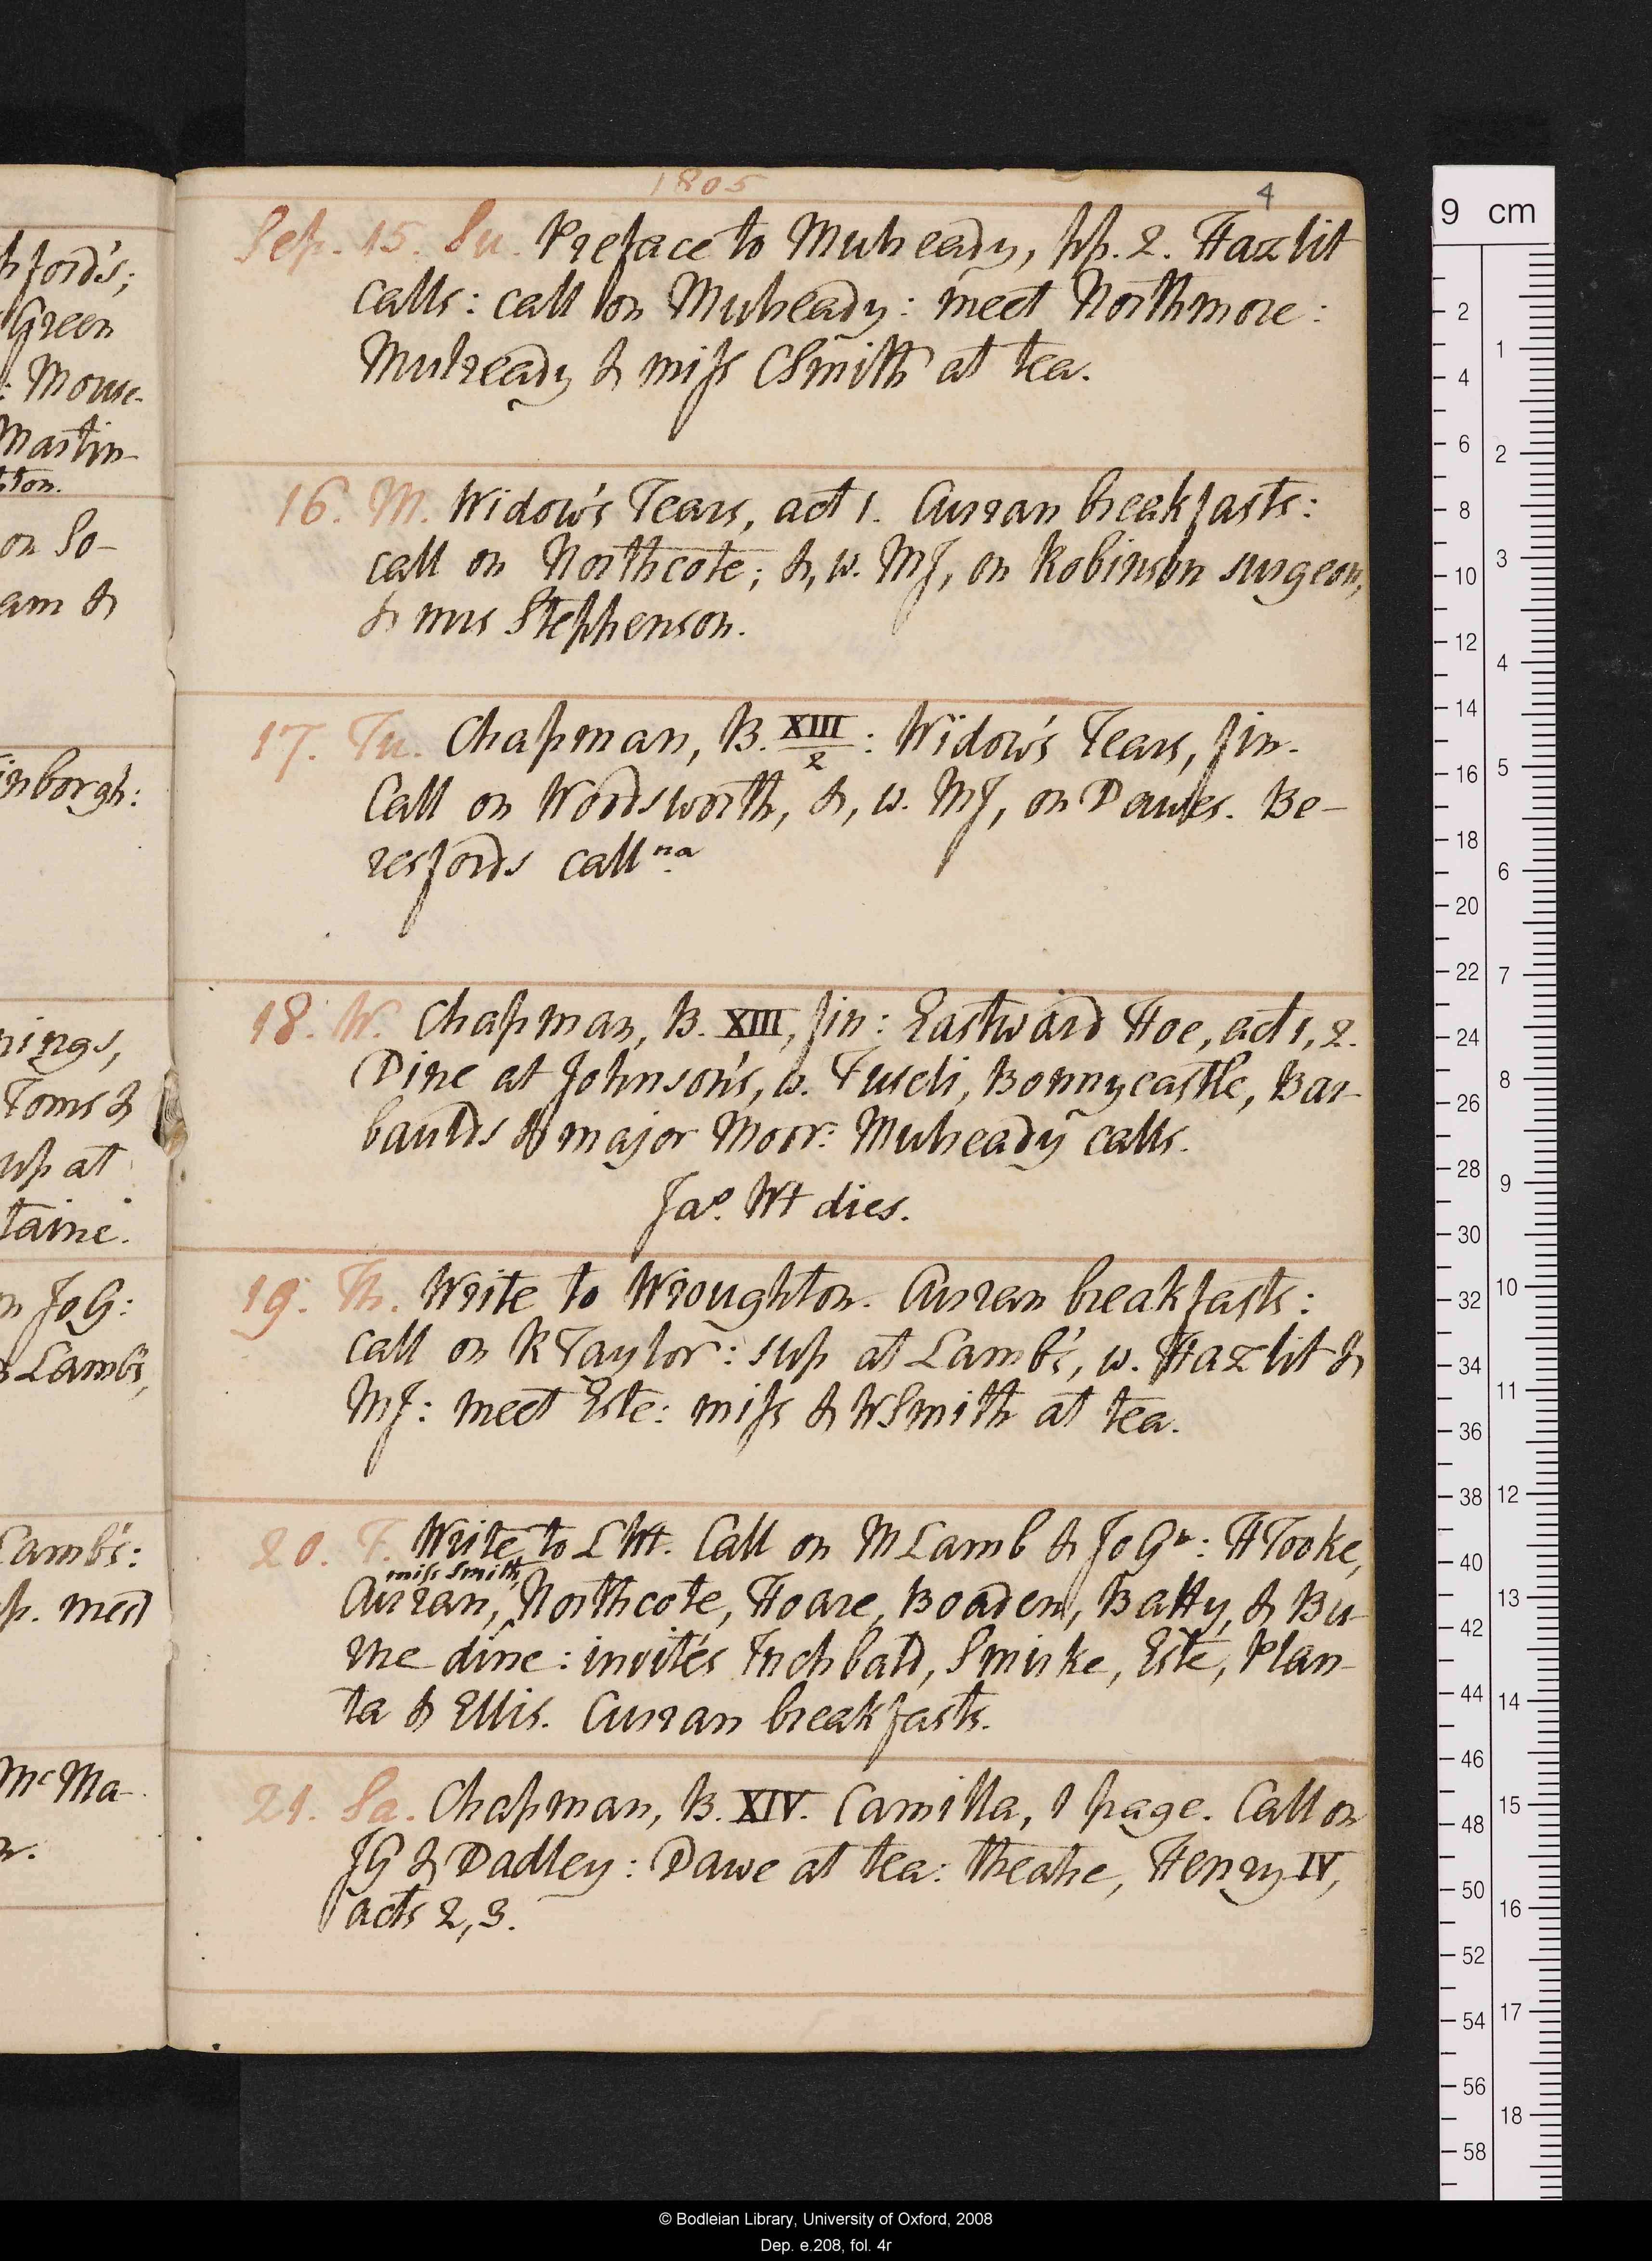 hford's;
Green
: Mouse-
Martin-
ton.
on So-
am &
inborgh:
nings,
Toms &
up at
taine.
n JoG:
& Lamb's,
Lamb's:
p. meet
McMa-
n.
1805
4
Sep. 15. Su. Preface to Mulready, pp. 2. Hazlit
calls: call on Mulready: meet Northmore:
Mulready & miss CSmith at tea.
16. M. Widow's Tears, act 1. Curran breakfasts:
call on Northcote; &, w. MJ, on Robinson surgeon,
& mrs Stephenson.
17. Tu. Chapman, B. XIII/2: Widow's Tears, fin.
Call on Wordsworth, &, w. MJ, on Dawes. Be-
resfords call na.
18. W. Chapman, B. XIII, fin: Eastward Hoe, act 1, 2.
Dine at Johnson's, w. Fuseli, Bonnycastle, Bar-
baulds & major Moor: Mulready calls.
Jas. Wt dies.
19. Th. Write to Wroughton. Curran breakfasts:
call on RTaylor: sup at Lamb's, w. Hazlit &
MJ: meet Este: miss & WSmith at tea.
20. F. Write to LWt. Call on MLamb & JoGn: HTooke,
miss Smith,
Curran, Northcote, Hoare, Boaden, Batty, & Bu-
rne dine: invités Inchbald, Smirke, Este, Plan-
ta & Ellis. Curran breakfasts.
21. Sa. Chapman, B. XIV. Camilla, 1 page. Call on
JG & Dadley: Dawe at tea: theatre, Henry IV,
acts 2, 3.
9 cm
2
4
6
8
10
12
14
16
18
20
22
24
26
28
30
32
34
36
38
40
42
44
46
48
50
52
54
56
58
1
2
3
4
5
6
7
8
9
10
11
12
13
14
15
16
17
18
© Bodleian Library, University of Oxford, 2008
Dep. e.208, fol. 4r